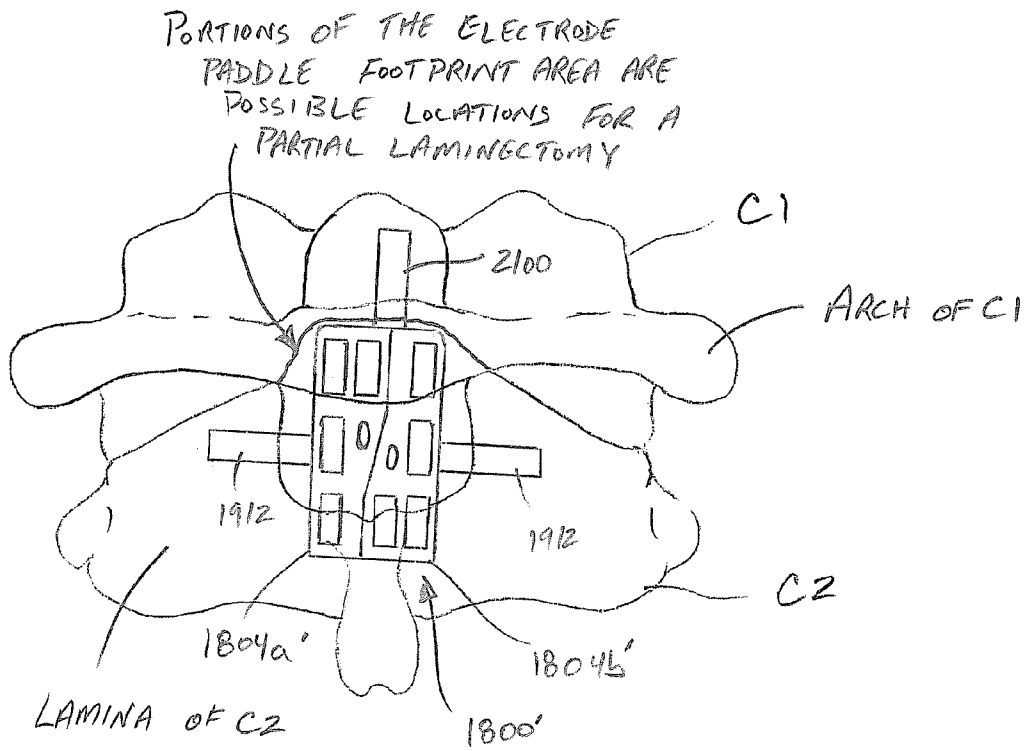 PORTIONS OF THE ELECTRODE
PADDLE FOOTPRINT AREA ARE
POSSIBLE LOCATIONS FOR A
PARTIAL LAMINECTOMY
C1
2100
ARCH OF C1
1912
1912
C2
1804a'
1804b'
LAMINA OF C2
1800'